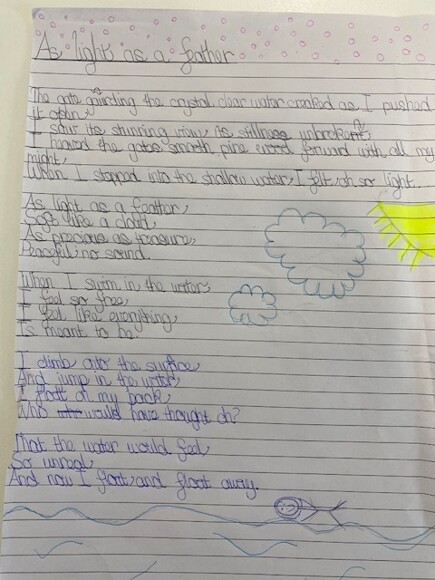 As light as a feather
The gate guarding the crystal clear water creaked as I pushed
it open,
I saw its stunning view, its stillness unbroken,
I heaved the gates smooth pine wood forward with all my
might,
When I stepped into the shallow water, I felt, oh so light.
As light as a feather,
Soft like a cloud,
As precious as treasure,
Peaceful, no sound.
When I swim in the water,
I feel so free,
I feel like everything,
Is meant to be.
I climb onto the surface,
And jump in the water,
I float on my back,
Who would have thought oh?
That the water would feel,
So unreal,
And now I float, and float away.